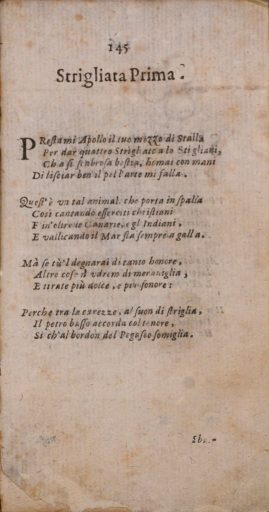 145
Strigliata Prima.
PRestami Apollo il tuo mozzo di Stalla
Per dar quattro Strigliate a lo Stigliani,
Ch'a sì bestia, homai con mani
Di lisciar ben il pel l'arte mi falla.
Quest' è vn tal animal, che porta in spalla
Così cantando esserciti christiani
F in'oltre le Canarie, e gl'Indiani,
E vallicando il Mar sta sempre a galla.
Mà se tù 'l degnarai di tanto honore,
Altre cose d' vdrem di merauiglia,
E tirate più dolce, e più sonore:
Perche tra le carezze, al suon di striglia,
Il petro basso accorda col tenore,
Si ch'al bordon del Pegaseo somiglia.